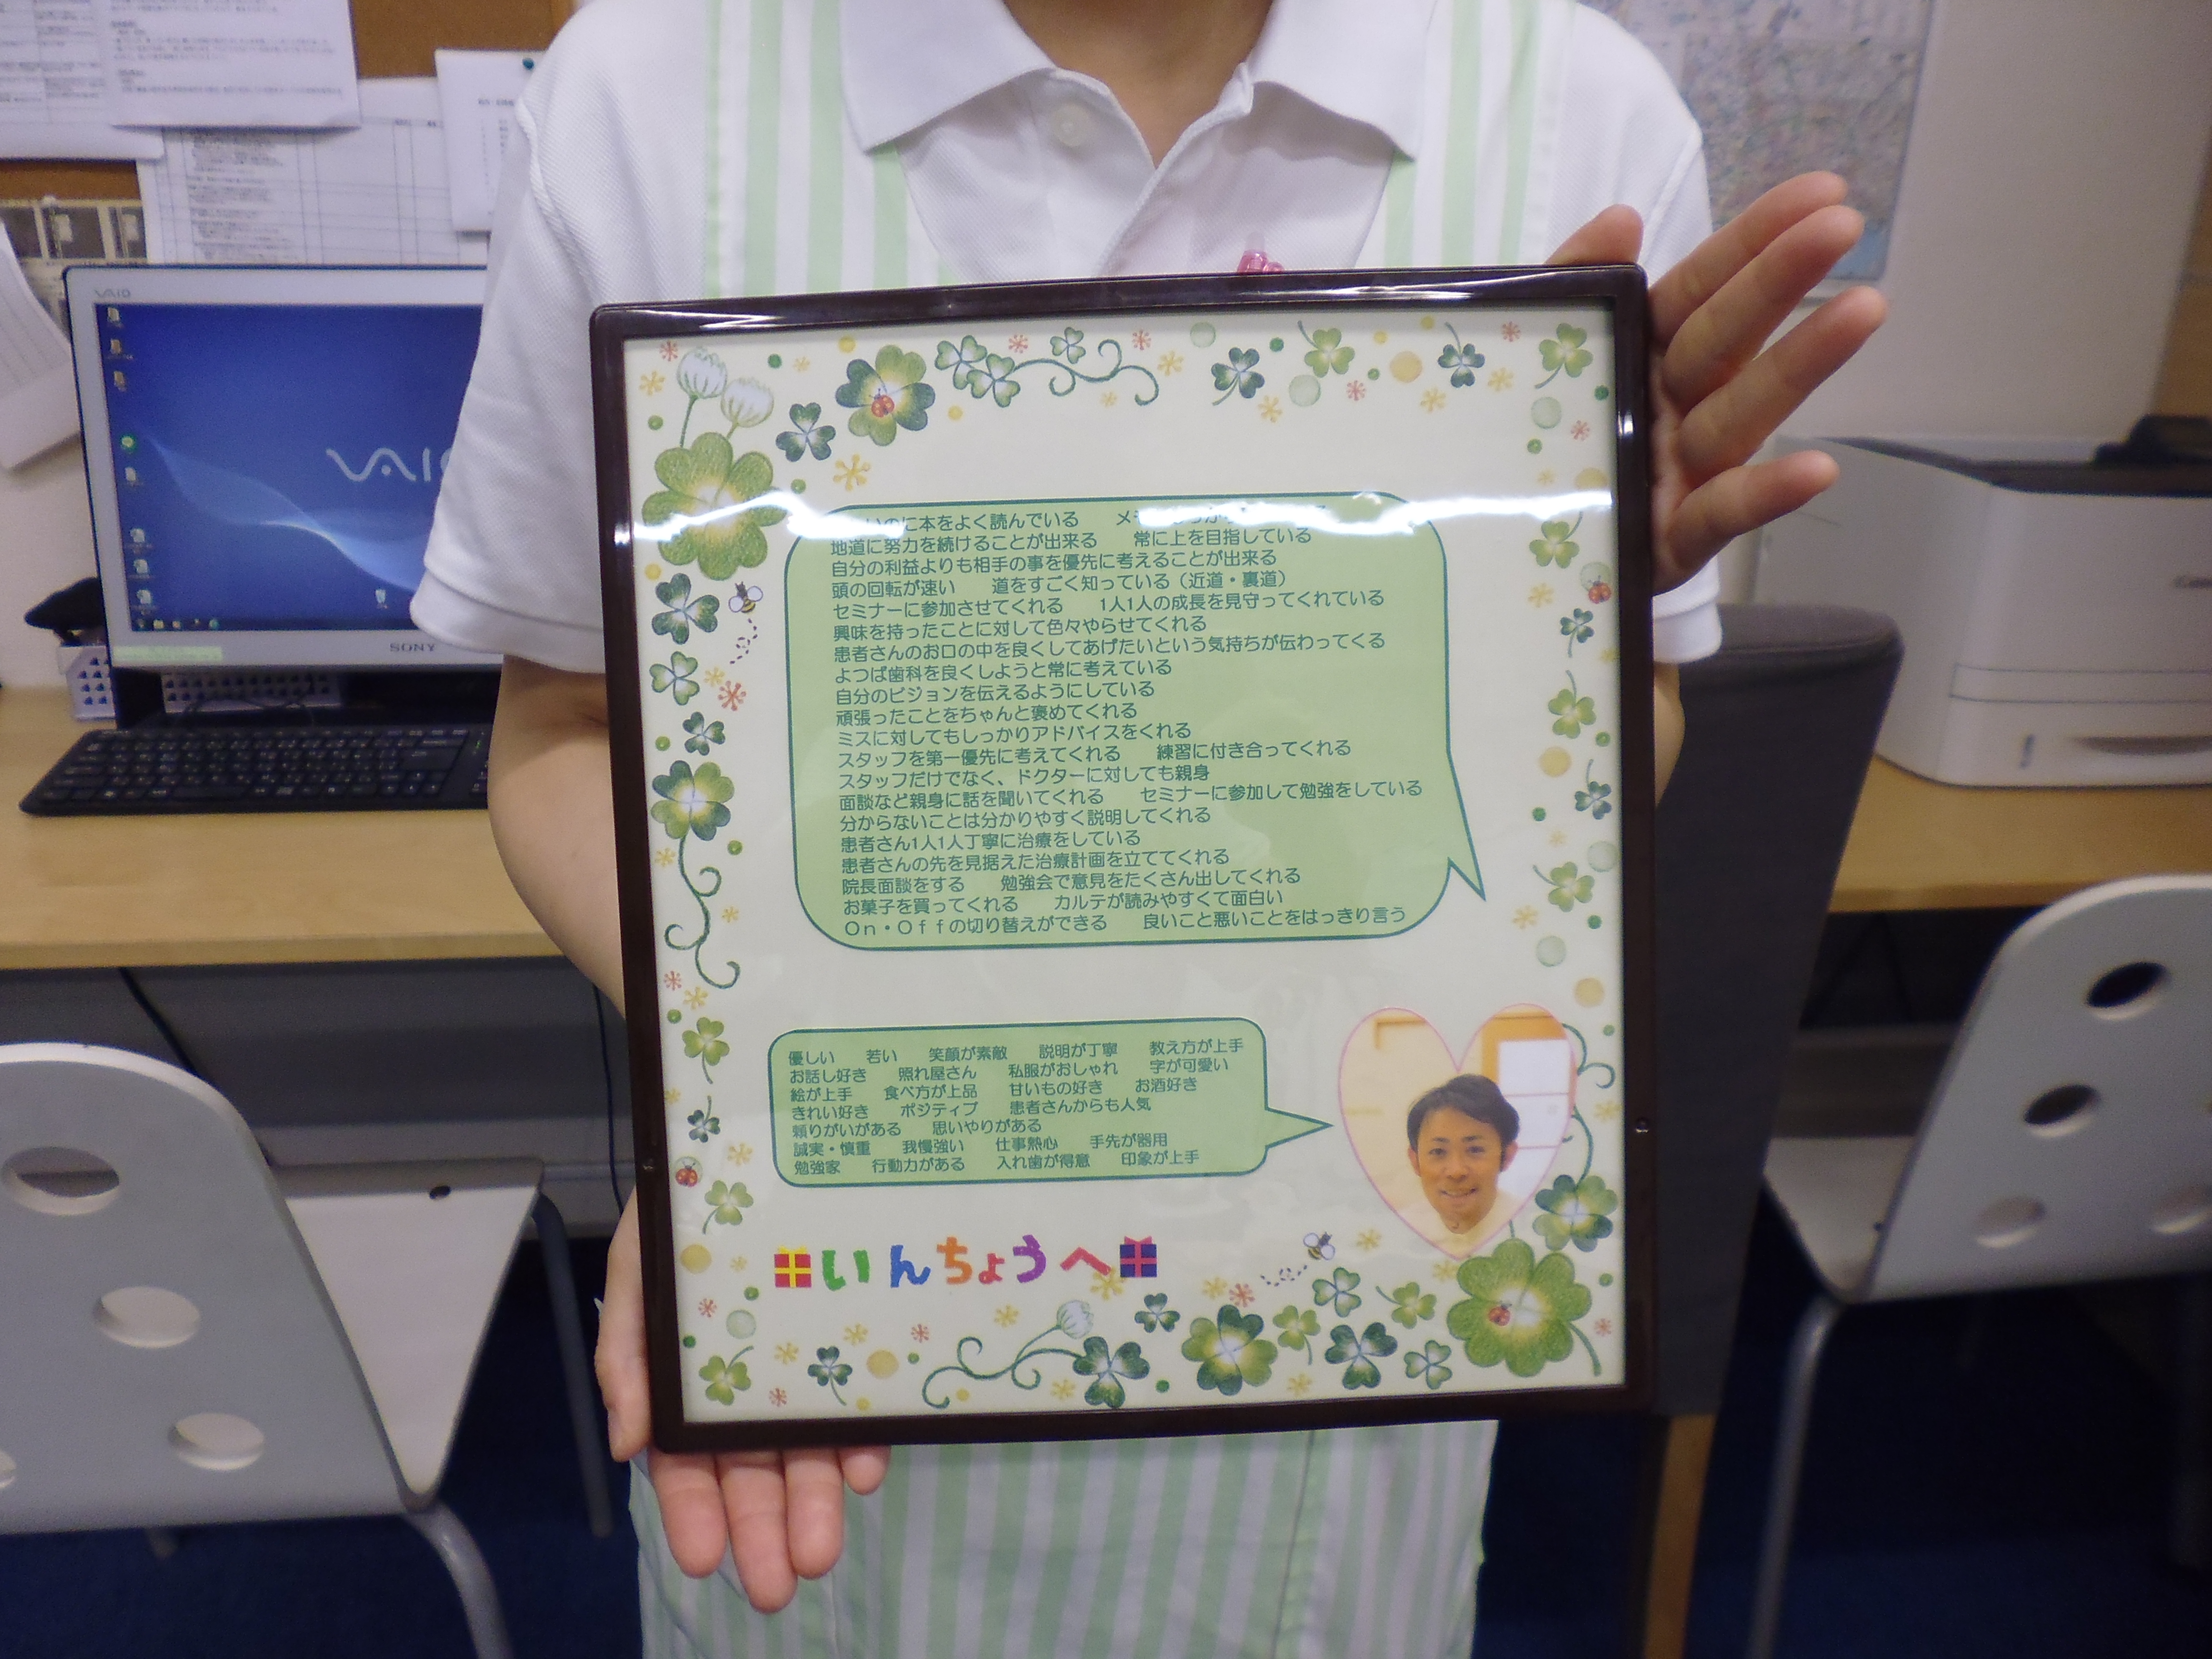 VAIO
VAIO
SONY
いのに本をよく読んでいる
地道に努力を続けることが出来る　常に上を目指している
自分の利益よりも相手の事を優先に考えることが出来る
頭の回転が速い　道をすごく知っている（近道・裏道）
セミナーに参加させてくれる　1人1人の成長を見守ってくれている
興味を持ったことに対して色々やらせてくれる
患者さんのお口の中を良くしてあげたいという気持ちが伝わってくる
よつば歯科を良くしようと常に考えている
自分のビジョンを伝えるようにしている
頑張ったことをちゃんと褒めてくれる
ミスに対してもしっかりアドバイスをくれる
スタッフを第一優先に考えてくれる　練習に付き合ってくれる
スタッフだけでなく、ドクターに対しても親身
面談など親身に話を聞いてくれる　セミナーに参加して勉強をしている
分からないことは分かりやすく説明してくれる
患者さん1人1人丁寧に治療をしている
患者さんの先を見据えた治療計画を立ててくれる
院長面談をする　勉強会で意見をたくさん出してくれる
お菓子を買ってくれる　カルテが読みやすくて面白い
Ｏｎ・Ｏｆｆの切り替えができる　良いこと悪いことをはっきり言う
優しい　若い　笑顔が素敵　説明が丁寧　教え方が上手
お話し好き　照れ屋さん　私服がおしゃれ　字が可愛い
絵が上手　食べ方が上品　甘いもの好き　お酒好き
きれい好き　ポジティブ　患者さんからも人気
頼りがいがある　思いやりがある
誠実・慎重　我慢強い　仕事熱心　手先が器用
勉強家　行動力がある　入れ歯が得意　印象が上手
いんちょうへ